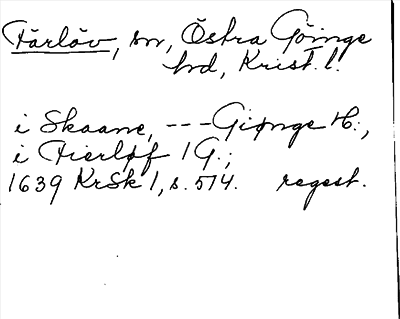 Färlöv, sn, Östra Göinge
hd, Krist. l.
i Skaane, --- Giønge H:,
i Fierløf 1 G.;
1639 KrSk 1, s. 514. regest.